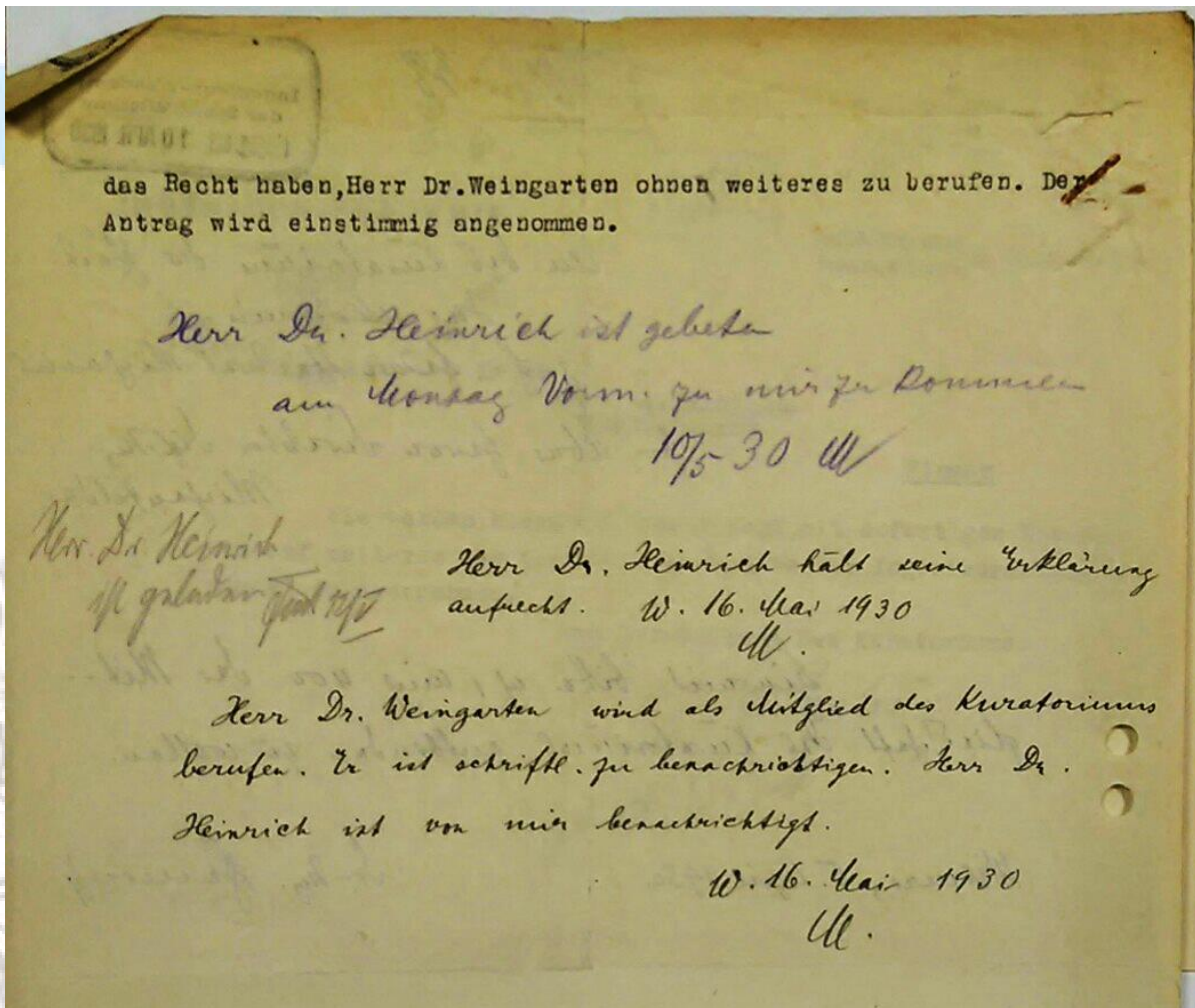 das Recht haben,Herr Dr.Weingarten ohnen weiteres zu berufen. Der
Antrag wird einstimmig angenommen.
Herr Dr. Heinrich ist gebeten
am Montag Vorm. zu mir zu kommen
10/5 30 M
Herr Dr. Heinrich
ist geladen 12/V
Herr Dr. Heinrich hält seine Erklärung
aufrecht. W. 16. Mai 1930
M.
Herr Dr. Weingarten wird als Mitglied des Kuratoriums
berufen. Er ist schriftl. zu benachrichtigen. Herr Dr.
Heinrich ist von mir benachrichtigt.
W. 16. Mai 1930
M.